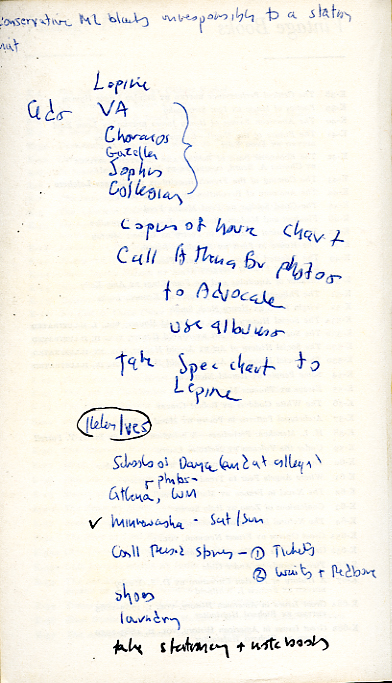 Conservative ML blacks unresponsible to a station
Lepine
Ads VA
Choragos
Gazette
Sophia
Collegian
Copies of house chart
Call Athena for photos
to Advocate
use albums
take Spec chart to
Lepine
Helen Ives
Schools of Dance (and at colleges)
photos
Athena, WM
✓ Minnewaska - Sat/Sun
Call Music stores - ① Tickets
② Waits + Redbone
shoes
laundry
take stationery + notebooks